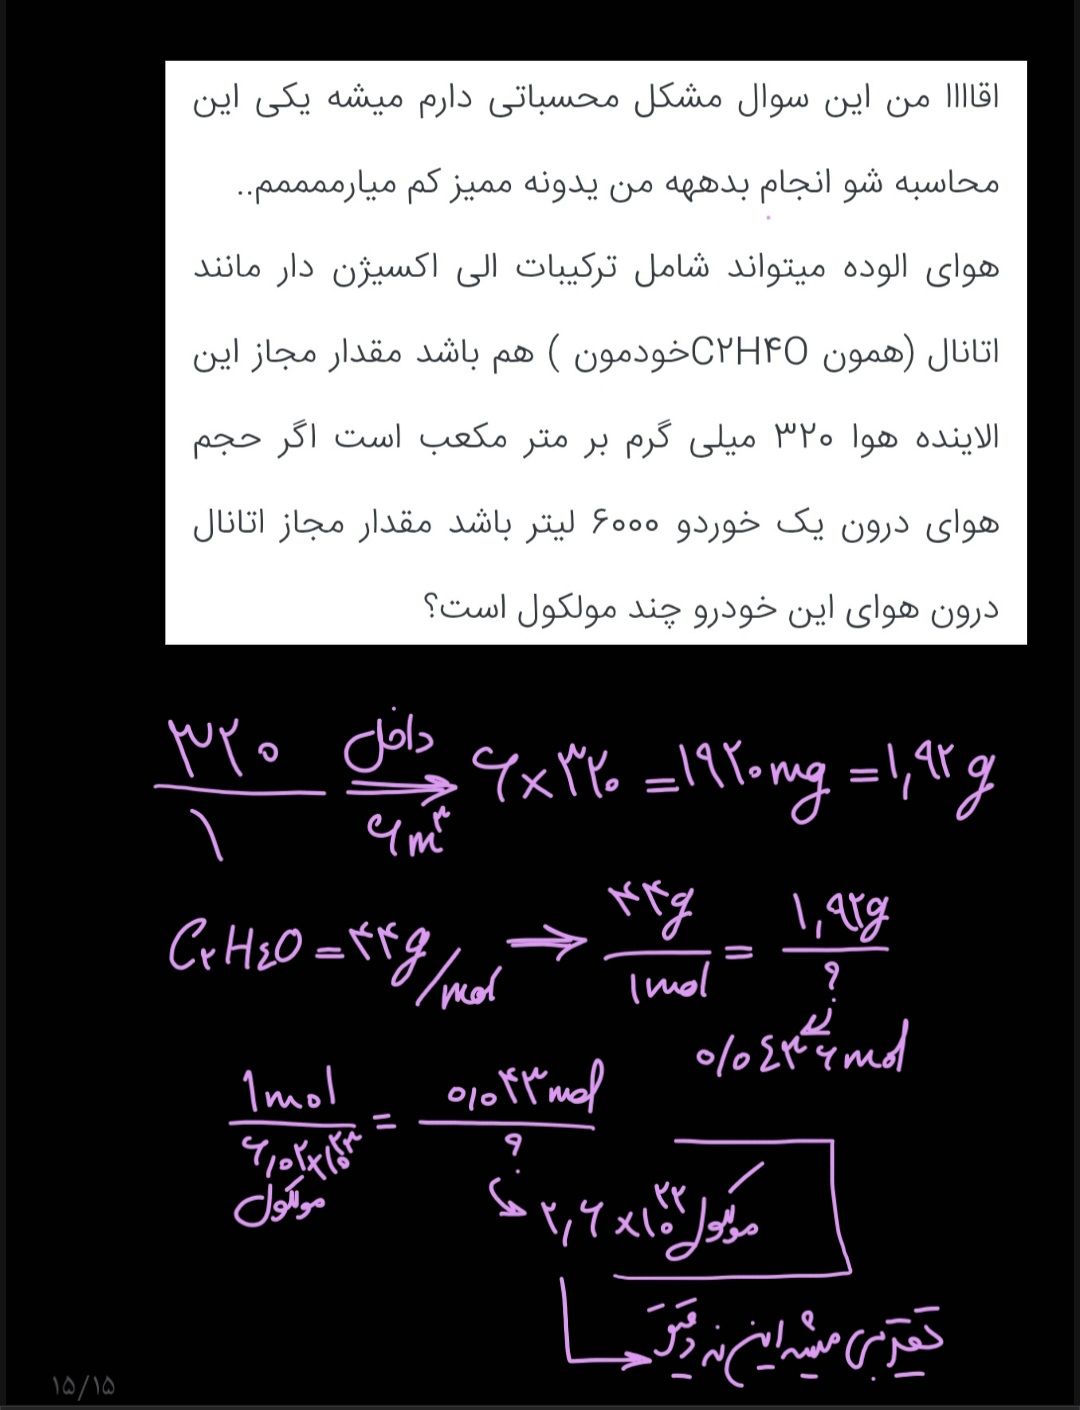 اقاااا من این سوال مشکل محسباتی دارم میشه یکی این
محاسبه شو انجام بدههه من یدونه ممیز کم میارممممم..
هوای الوده میتواند شامل ترکیبات الی اکسیژن دار مانند
اتانال (همون C۲H۴Oخودمون ) هم باشد مقدار مجاز این
الاینده هوا ۳۲۰ میلی گرم بر متر مکعب است اگر حجم
هوای درون یک خوردو ۶۰۰۰ لیتر باشد مقدار مجاز اتانال
درون هوای این خودرو چند مولکول است؟
۳۲۰ / ۱ داخل ⇒ ۶m³ ۶×۳۲۰ = ۱۹۲۰mg = ۱,۹۲g
C۲H٤O = ۴۴g/mol ⇒ ۴۴g / ۱mol = ۱,۹۲g / ?
۰/۰٤۳۶mol
۱mol / ۶,۰۲×۱۰²³ مولکول = ۰/۰۴۳mol / ?
۲,۶×۱۰²² مولکول
تقریبی میشه این نه دقیق
۱۵/۱۵